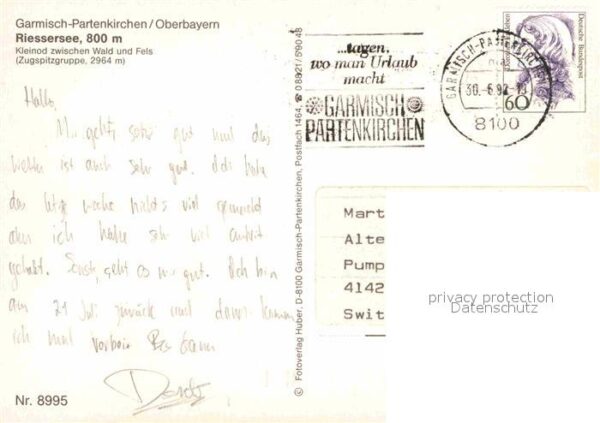 Garmisch-Partenkirchen/Oberbayern
Riessersee, 800 m
Kleinod zwischen Wald und Fels
(Zugspitzgruppe, 2964 m)
Hallo,
geht's sehr gut und das
Wetter ist auch sehr gut. Ich habe
letzte Woche nichts viel gemacht
aber ich habe sehr viel
gehabt. Sonst geht es mir gut. Ich bin
am 21 Juli zurück und dann komme
ich mal vorbei
Nr. 8995
© Fotoverlag Huber, D-8100 Garmisch-Partenkirchen, Postfach 1464, ☎ 0 88 21/5 90 48
...tagen,
wo man Urlaub
macht
GARMISCH
PARTENKIRCHEN
GARMISCH-PARTENKIRCHEN
30.-6.92-18
8100
Deutsche Bundespost
60
Mart
Alte
Pump
4142
Swit
privacy protection
Datenschutz